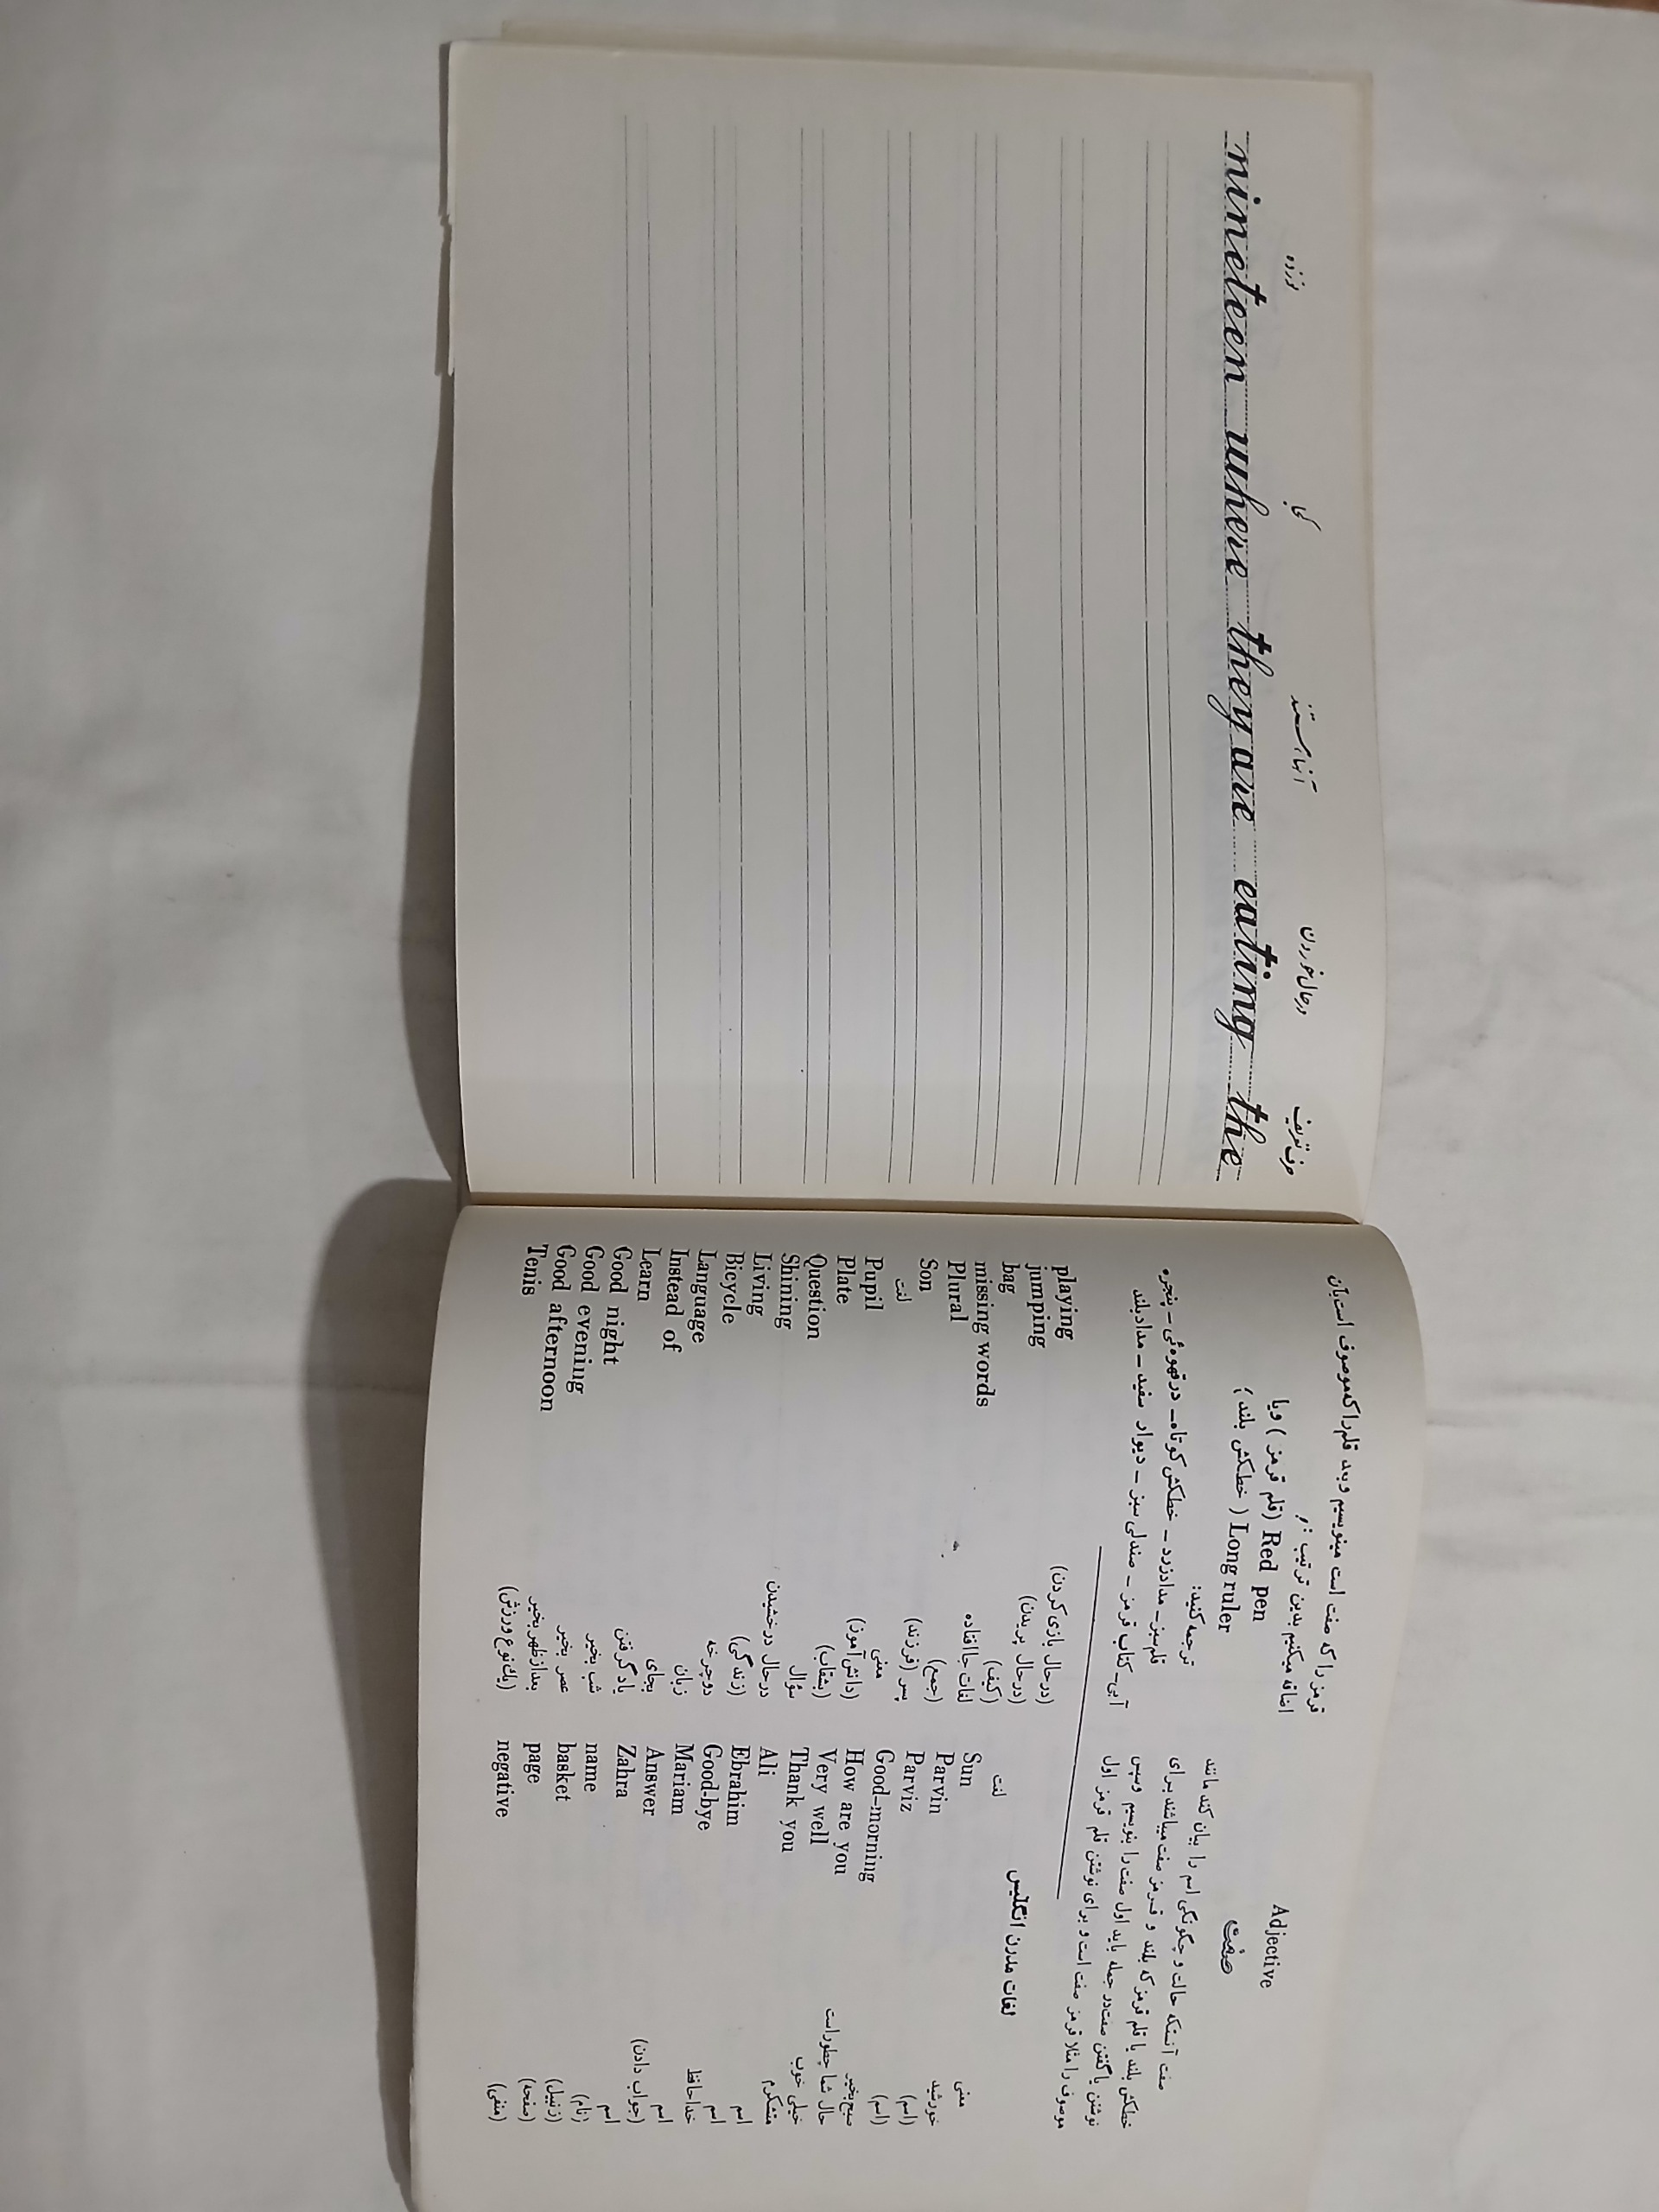 نوزده کجا آنها هستند در حال خوردن حرف تعریف
nineteen where they are eating the
Adjective
صفت
صفت آنستکه حالت و چگونگی اسم را بیان کند مانند
خطکش بلند یا قلم قرمز که بلند و قرمز صفت میباشند برای
نوشتن یا گفتن صفت در جمله باید اول صفت را بنویسیم و سپس
موصوف را مثلا قرمز صفت است و برای نوشتن قلم قرمز اول
قرمز را که صفت است مینویسیم و بعد قلم را که موصوف است بآن
اضافه میکنیم بدین ترتیب :
Red pen (قلم قرمز) ویا
Long ruler (خطکش بلند)
ترجمه کنید:
قلم سبز - مداد زرد - خطکش کوتاه - در قهوه‌ئی - پنجره
آبی - کتاب قرمز - صندلی سبز - دیوار سفید - مداد بلند
لغات مدرن انگلیس
لغت معنی
Sun خورشید
Parvin (اسم)
Parviz (اسم)
Good-morning صبح بخیر
How are you حال شما چطور است
Very well خیلی خوب
Thank you متشکرم
Ali اسم
Ebrahim اسم
Good-bye خداحافظ
Mariam اسم
Answer (جواب دادن)
Zahra اسم
name (نام)
basket (زنبیل)
page (صفحه)
negative (منفی)
playing (در حال بازی کردن)
jumping (در حال پریدن)
bag (کیف)
missing words لغات جا افتاده
Plural (جمع)
Son پسر (فرزند)
لغت معنی
Pupil (دانش آموز)
Plate (بشقاب)
Question سؤال
Shining در حال درخشیدن
Living (زندگی)
Bicycle دوچرخه
Language زبان
Instead of بجای
Learn یاد گرفتن
Good night شب بخیر
Good evening عصر بخیر
Good afternoon بعد از ظهر بخیر
Tenis (یك نوع ورزش)